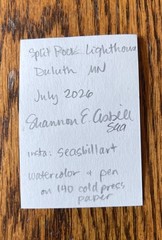 Split Rock Lighthouse
Duluth MN
July 2026
Shannon E. Asbill
insta: seasbillart
watercolor + pen
on 140 cold press
paper